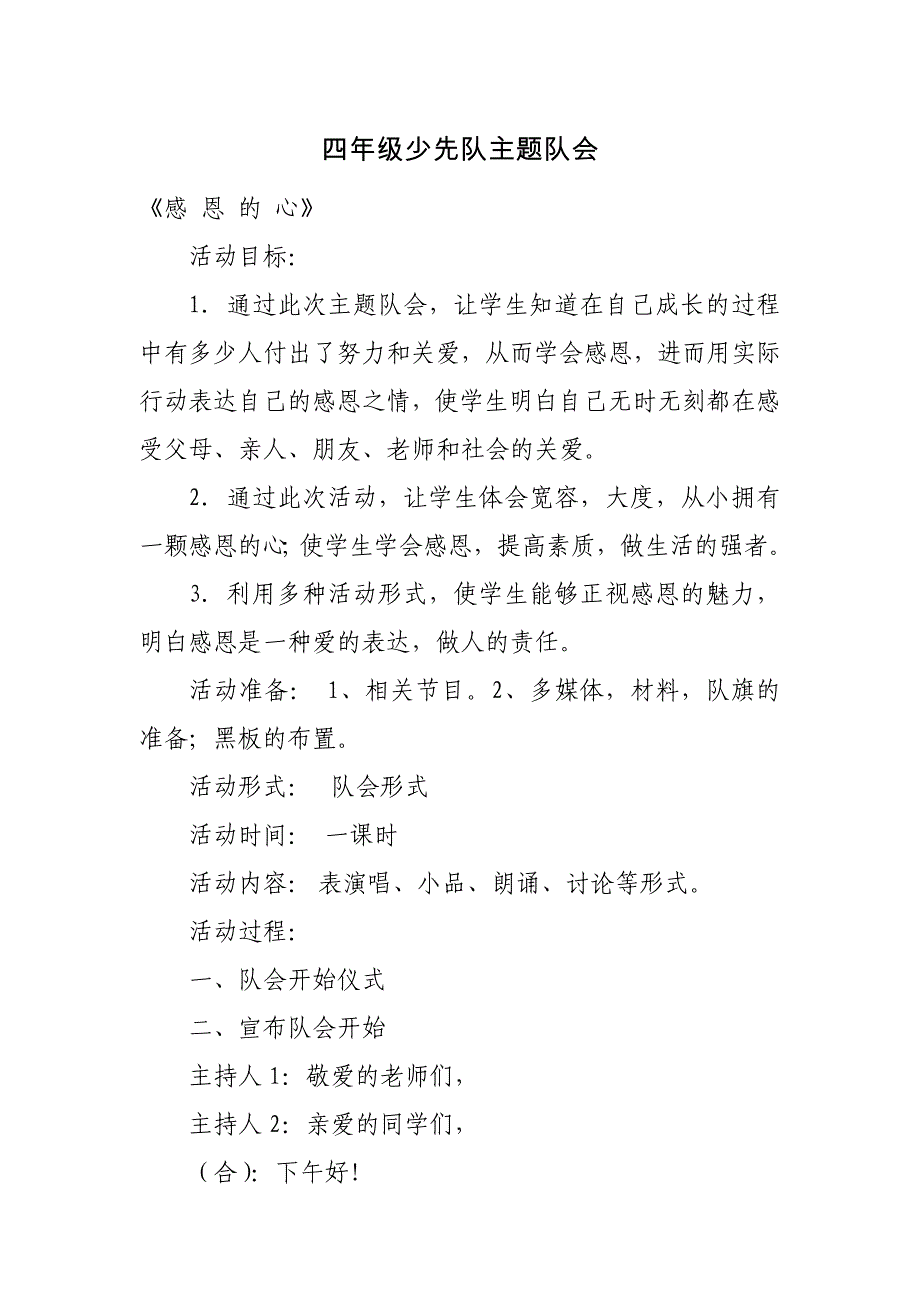 四年级少先队主题队会
《感 恩 的 心》
活动目标：
1．通过此次主题队会，让学生知道在自己成长的过程
中有多少人付出了努力和关爱，从而学会感恩，进而用实际
行动表达自己的感恩之情，使学生明白自己无时无刻都在感
受父母、亲人、朋友、老师和社会的关爱。
2．通过此次活动，让学生体会宽容，大度，从小拥有
一颗感恩的心；使学生学会感恩，提高素质，做生活的强者。
3．利用多种活动形式，使学生能够正视感恩的魅力，
明白感恩是一种爱的表达，做人的责任。
活动准备： 1、相关节目。2、多媒体，材料，队旗的
准备；黑板的布置。
活动形式： 队会形式
活动时间： 一课时
活动内容：表演唱、小品、朗诵、讨论等形式。
活动过程：
一、队会开始仪式
二、宣布队会开始
主持人1：敬爱的老师们，
主持人2：亲爱的同学们，
（合）：下午好！